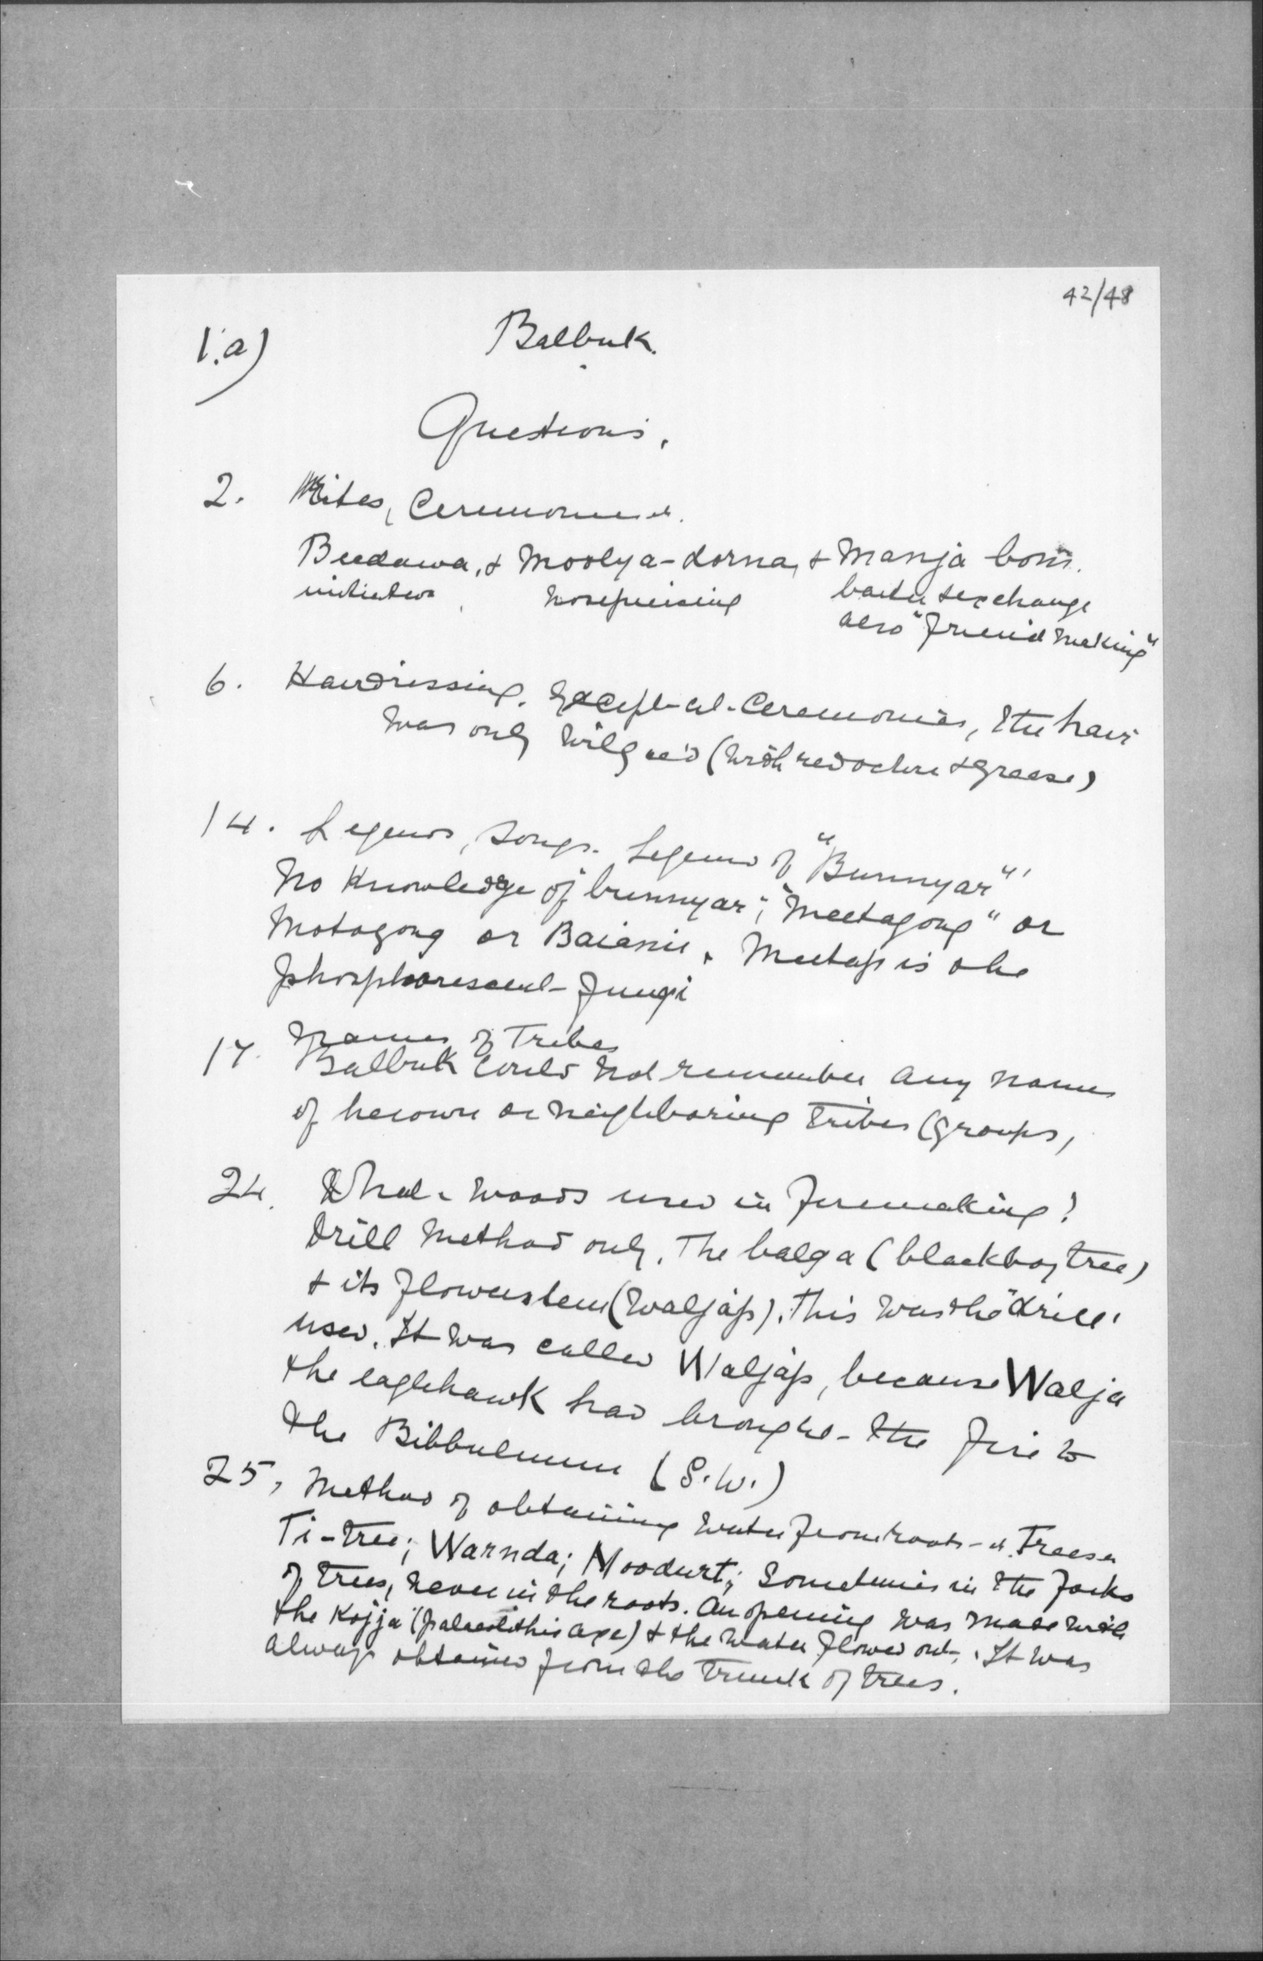 42/48
1.a) Balbuk.
Questions.
2. Rites, Ceremonies.
Beedawa, & Moolya-dorna, & Manja bom.
initiation, nosepiercing barter & exchange
also "friend making"
6. Hairdressing. Except at Ceremonies, the hair
was only wilgee'd (with red ochre & grease)
14. Legends, songs. Legend of "Bunnyar"
No knowledge of bunnyar; "meetagong" or
Motogong or Baiamie. Meetap is the
phosphorescent fungi
17. Names of Tribes
Balbuk could not remember any names
of her own or neighboring tribes (groups,
24. What woods used in firemaking?
Drill method only. The balga (blackboy tree)
& its flowerstem (waljap). This was the "drill"
used. It was called Waljap, because Walja
the eaglehawk had brought the fire to
the Bibbulmun (S.W.)
25, Method of obtaining water from roots & trees
Ti-tree; Warnda; Moodurt; Sometimes in the forks
of trees, never in the roots. An opening was made with
the Kojja (palaeolithic axe) & the water flowed out. It was
always obtained from the trunk of trees.